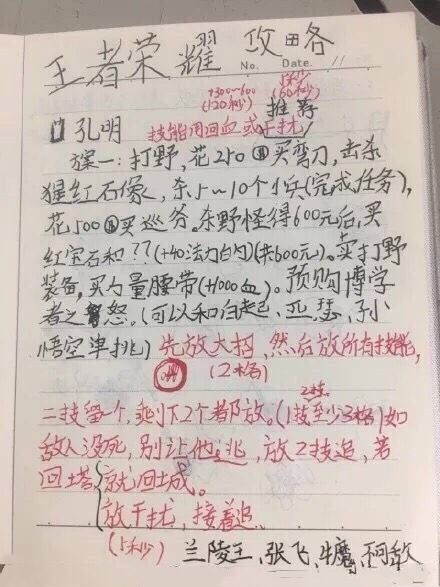 王者荣耀 攻略
No. Date. 11
+300~600 5秒
(120秒) (60秒)
推荐
孔明 技能用回血或干扰
方案一:打野,花250买弯刀,击杀
猩红石像,杀5~10个小兵(完成任务),
花500买巡夯。杀野怪得600元后,买
红宝石和??(+40法力白闪)(来600元)。卖打野
装备,买力量腰带(+1000血)。预购博学
者之怒。(可以和白起、亚瑟、孙
悟空单挑)先放大招,然后放所有技能,
(2格)
2技
二技留一个,剩下2个都放。(1技至少3格)如
敌人没死,别让他逃,放2技追,若
回塔就回城。
放干扰,接着追
(5秒) 兰陵王、张飞、牛魔、不可敌